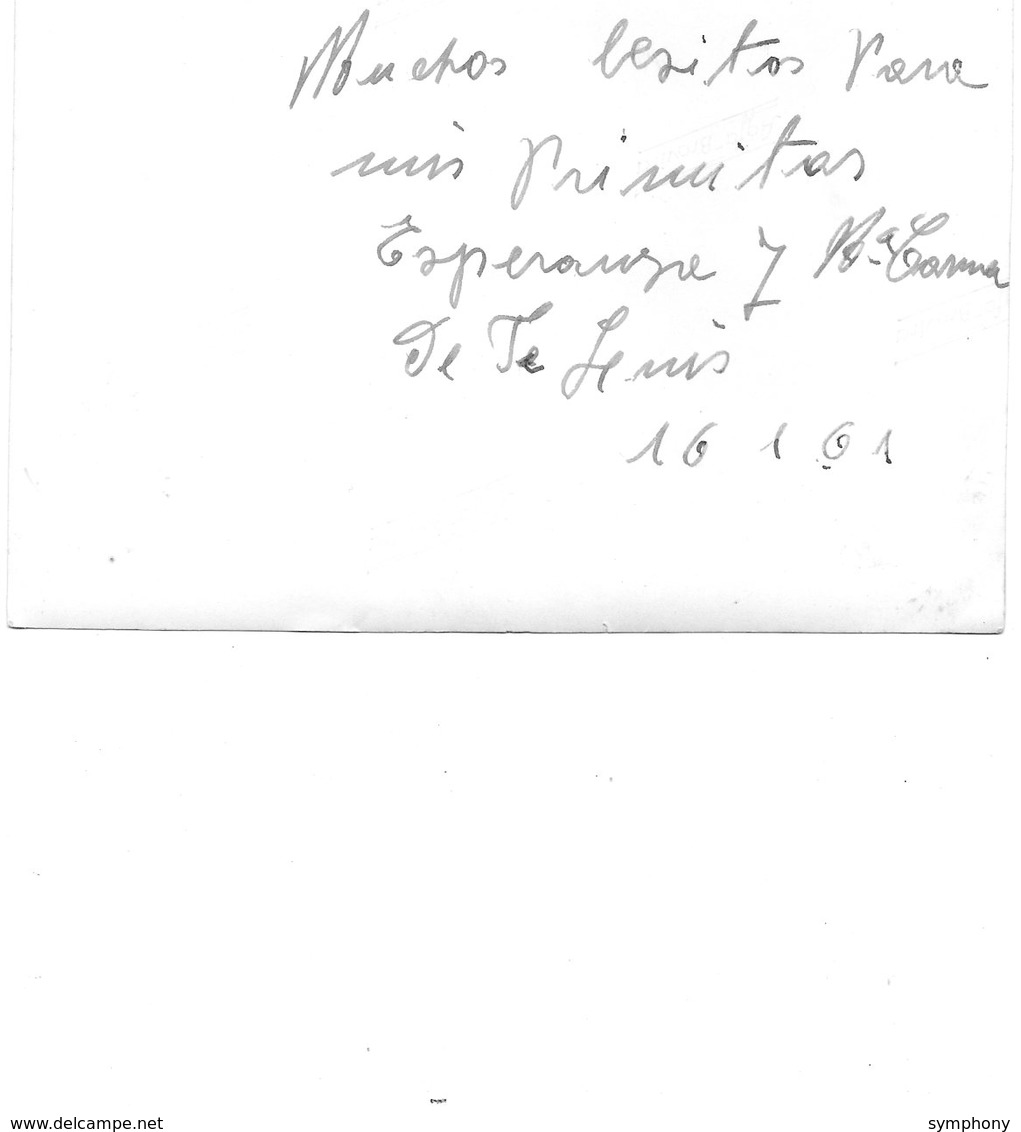 Muchos besitos Para
mis Primitas
Esperanza y Mª Carma
De Te
16 1 61
delcampe.net
symphony